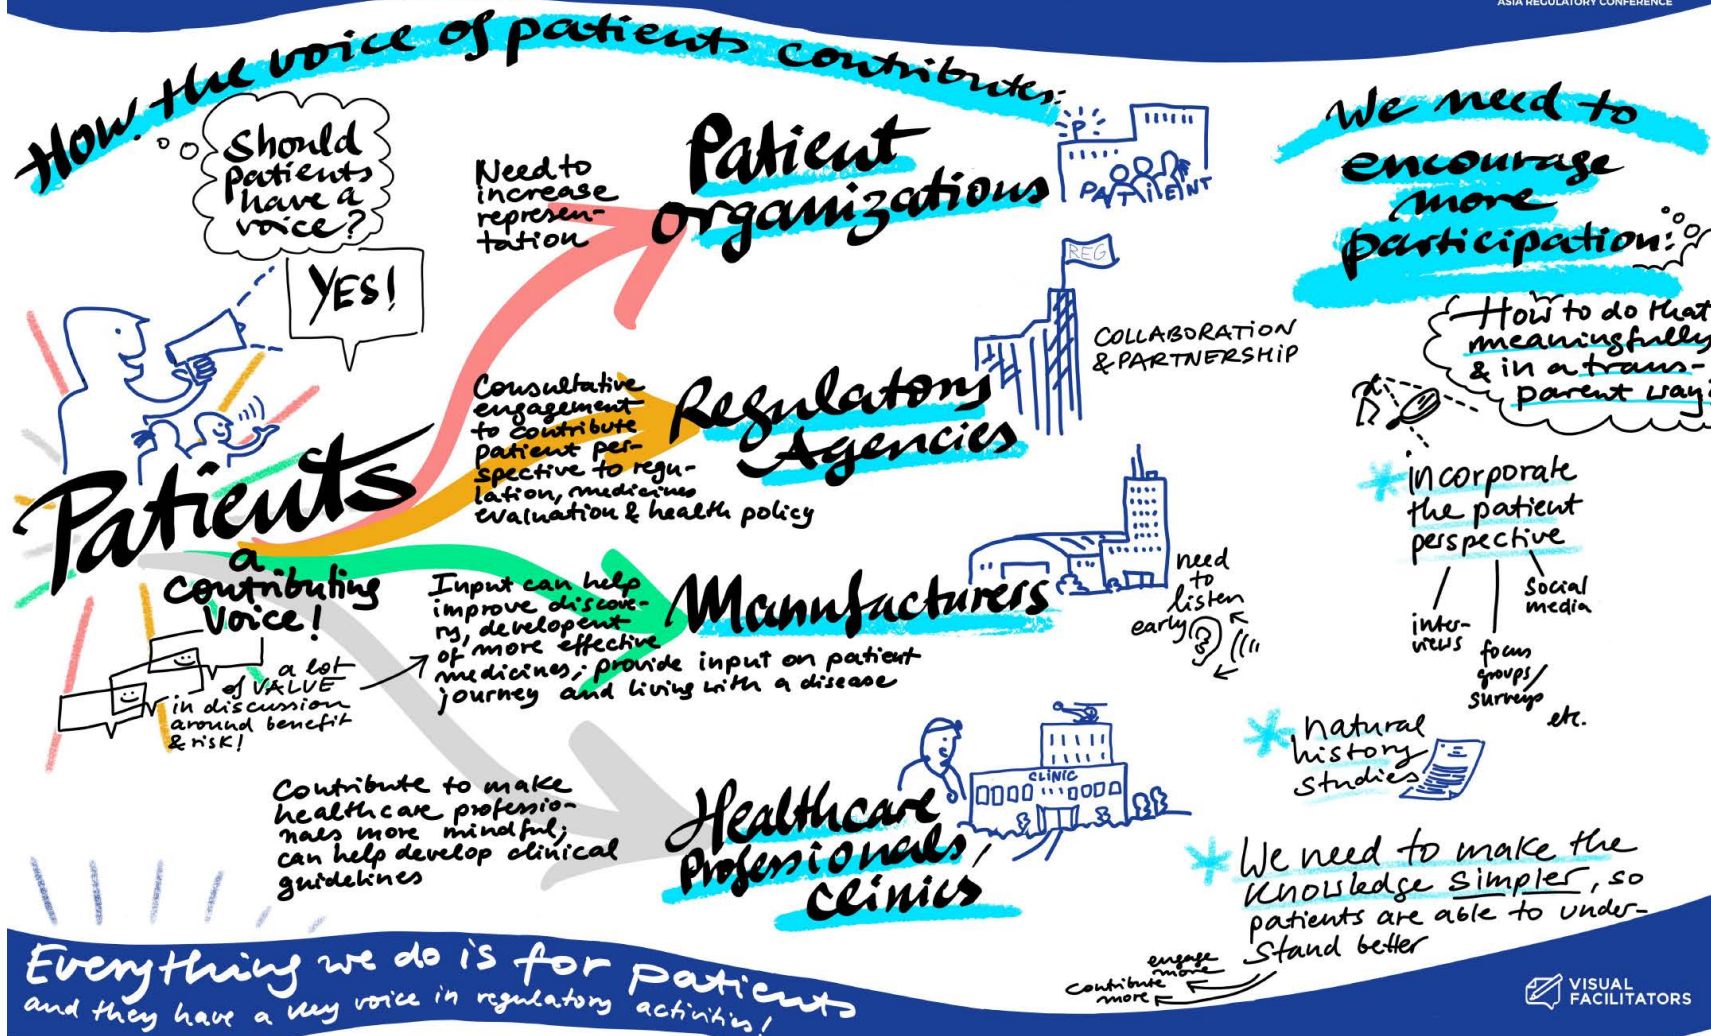 ASIA REGULATORY CONFERENCE
How the voice of patients contributes:
Should
patients
have a
voice?
YES!
Patients
a
contributing
Voice!
a lot
of VALUE
in discussion
around benefit
& risk!
Need to
increase
represen-
tation
Patient
organizations
P
PATIENT
Consultative
engagement
to contribute
patient per-
spective to regu-
lation, medicines
evaluation & health policy
Regulatory
Agencies
REG
COLLABORATION
& PARTNERSHIP
Input can help
improve discove-
ry, developent
of more effective
medicines; provide input on patient
journey and living with a disease
Manufacturers
need
to
listen
early
Contribute to make
healthcare professio-
nals more mindful;
can help develop clinical
guidelines
Healthcare
Professionals/
Clinics
CLINIC
We need to
encourage
more
participation:
How to do that
meaningfully
& in a trans-
parent way?
* incorporate
the patient
perspective
inter-
views
focus
groups/
surveys
social
media
etc.
* natural
history
studies
* We need to make the
knowledge simpler, so
patients are able to under-
stand better
engage
more
contribute
more
Everything we do is for patients
and they have a key voice in regulatory activities!
VISUAL
FACILITATORS